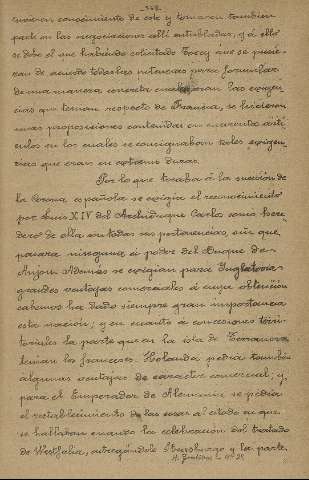 -348-
tuvieron conocimiento de este y tomaron tambien
parte en las negociaciones allí entabladas, y á ello
se debe el que habiendo solicitado Torcy que se pusie-
ran de acuerdo todas las potencias para formular
de una manera concreta cuales eran las exigen-
cias que tenian respecto de Francia, se hicieron
unas proposiciones contenidas en cuarenta artí-
culos en los cuales se consignaban tales exigen-
cias que eran en extremo duras.
Por lo que tocaba á la sucesión de
la Corona española se exigia el reconocimiento
por Luis XIV del Archiduque Carlos como here-
dero de ella con todas sus pertenencias, sin que
pasara ninguna á poder del Duque de
Anjou. Además se exigian para Inglaterra
grandes ventajas comerciales á cuya
sabemos ha dado siempre gran importancia
esta nación; y en cuanto á concesiones terri-
toriales la parte que en la isla de Terranova
tenian los franceses. Holanda pedia también
algunas ventajas de caracter comercial; y
para el Emperador de Alemania se pedia
el restablecimiento de las cosas al estado en que
se hallaban cuando la celebración del tratado
de Westfalia, entregándole Strasburgo y la parte